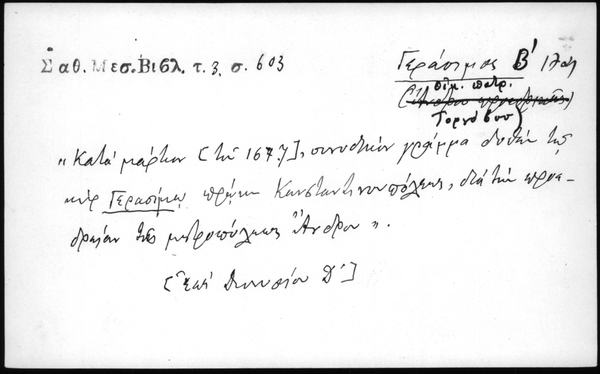 Σαθ. Μεσ. Βιβλ. τ. 3. σ. 603
Γεράσιμος Β΄
οἰκ. πατρ.
(Ἄνδρου
Τορνόβου)
"Κατὰ μάρτιον [τοῦ 1677], συνοδικὸν γράμμα δοθὲν τῷ
κὺρ Γερασίμῳ πρώην Κωνσταντινουπόλεως, διὰ τὴν προε-
δρείαν τῆς μητροπόλεως Ἄνδρου".
[Ἐπὶ Διονυσίου Δ΄]